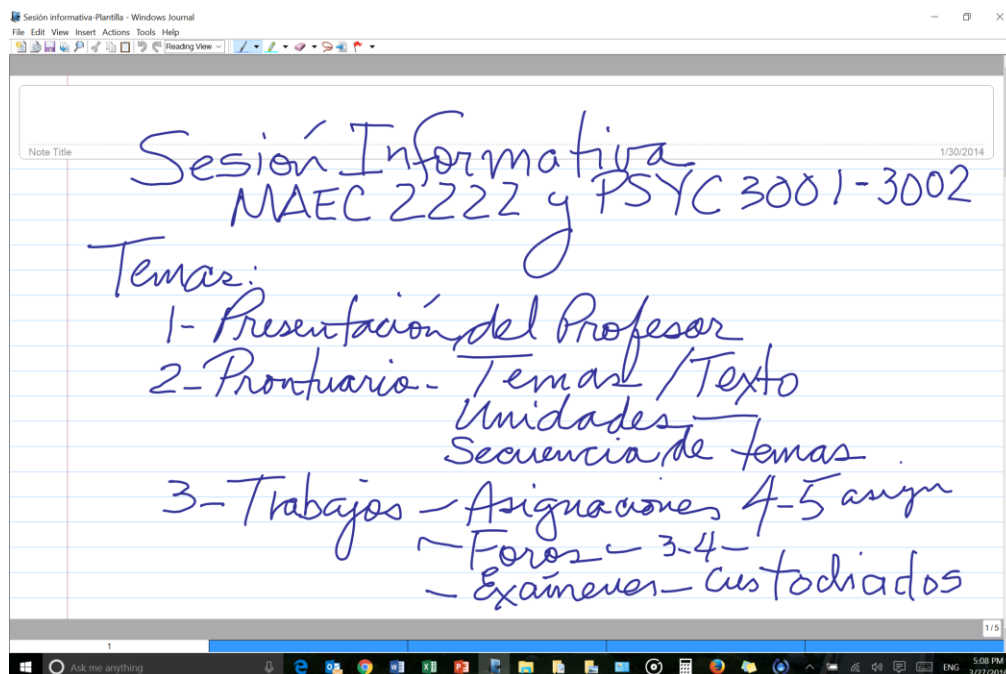 Sesión informativa-Plantilla - Windows Journal
File Edit View Insert Actions Tools Help
Reading View
Note Title
1/30/2014
Sesión Informativa
MAEC 2222 y PSYC 3001-3002
Temas:
1- Presentación del Profesor
2- Prontuario - Temas / Texto
Unidades
Secuencia de temas.
3- Trabajos - Asignaciones 4-5 asign
- Foros - 3-4-
- Exámenes - custodiados
1 / 5
1
Ask me anything
ENG
5:08 PM